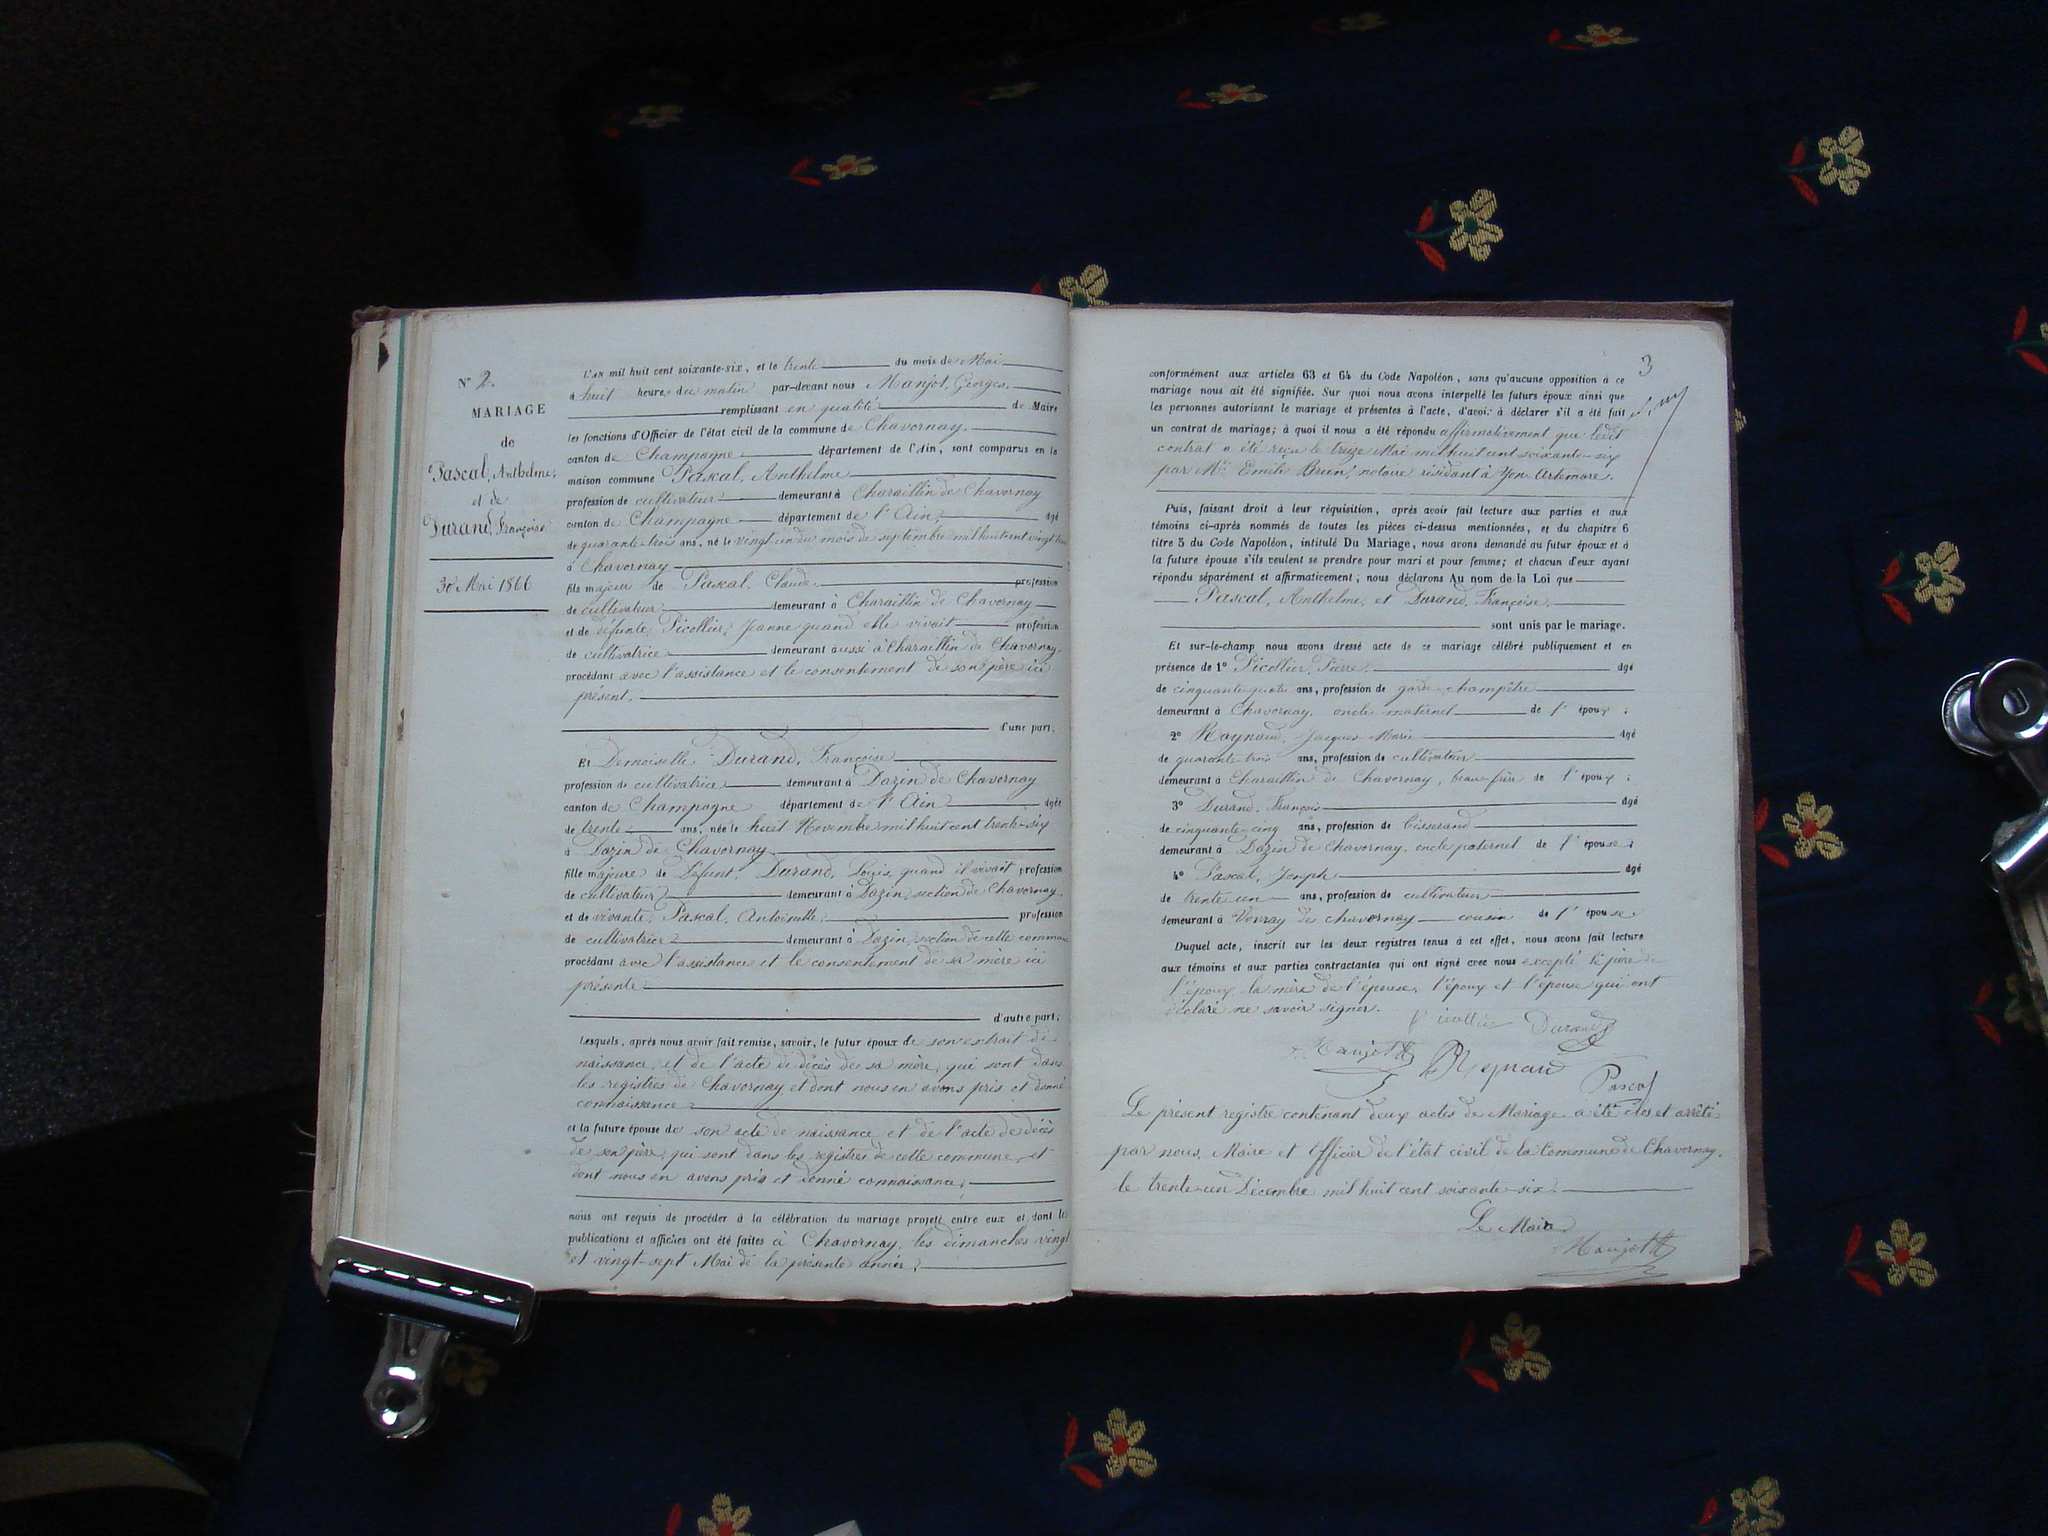 N° 2.
MARIAGE
de
Pascal, Anthelme,
et de
Durand, Françoise
30 Mai 1866
L'AN mil huit cent soixante-six, et le trente du mois de Mai
à huit heures du matin par-devant nous Manjot, Georges,
remplissant en qualité de Maire
les fonctions d'Officier de l'état civil de la commune de Chavornay,
canton de Champagne département de l'Ain, sont comparus en la
maison commune Pascal, Anthelme
profession de cultivateur demeurant à Charaillin de Chavornay
canton de Champagne département de l'Ain, âgé
de quarante-trois ans, né le vingt-un du mois de septembre mil huit cent vingt
à Chavornay
fils majeur de Pascal, Claude profession
de cultivateur demeurant à Charaillin de Chavornay
et de défunte, Picollier, Jeanne quand elle vivait profession
de cultivatrice demeurant aussi à Charaillin de Chavornay,
procédant avec l'assistance et le consentement de son père ici
présent.
d'une part;
Et Demoiselle Durand, Françoise
profession de cultivatrice demeurant à Dazin de Chavornay
canton de Champagne département de l'Ain âgée
de trente ans, née le huit Novembre mil huit cent trente-six
à Dazin de Chavornay
fille majeure de Défunt, Durand, Louis, quand il vivait profession
de cultivateur demeurant à Dazin, section de Chavornay,
et de vivante, Pascal, Antoinette, profession
de cultivatrice demeurant à Dazin, section de cette commune
procédant avec l'assistance et le consentement de sa mère ici
présente
d'autre part;
Lesquels, après nous avoir fait remise, savoir, le futur époux de son extrait de
naissance, et de l'acte de décès de sa mère, qui sont dans
les registres de Chavornay et dont nous en avons pris et donné
connaissance
et la future épouse de son acte de naissance et de l'acte de décès
de son père, qui sont dans les registres de cette commune, et
dont nous en avons pris et donné connaissance,
nous ont requis de procéder à la célébration du mariage projeté entre eux et dont les
publications et affiches ont été faites à Chavornay, les dimanches vingt
et vingt-sept Mai de la présente année,
3
conformément aux articles 63 et 64 du Code Napoléon, sans qu'aucune opposition à ce
mariage nous ait été signifiée. Sur quoi nous avons interpellé les futurs époux ainsi que
les personnes autorisant le mariage et présentes à l'acte, d'avoir à déclarer s'il a été fait
un contrat de mariage; à quoi il nous a été répondu affirmativement que ledit
contrat a été reçu le treize Mai mil huit cent soixante-six
par Me Emile Brun, notaire résidant à Yon-Artemare.
Puis, faisant droit à leur réquisition, après avoir fait lecture aux parties et aux
témoins ci-après nommés de toutes les pièces ci-dessus mentionnées, et du chapitre 6
titre 5 du Code Napoléon, intitulé Du Mariage, nous avons demandé au futur époux et à
la future épouse s'ils veulent se prendre pour mari et pour femme; et chacun d'eux ayant
répondu séparément et affirmativement; nous déclarons Au nom de la Loi que
Pascal, Anthelme, et Durand, Françoise,
sont unis par le mariage.
Et sur-le-champ nous avons dressé acte de ce mariage célébré publiquement et en
présence de 1° Picollier, Pierre âgé
de cinquante-quatre ans, profession de garde-champêtre
demeurant à Chavornay, oncle maternel de l'époux;
2° Raynaud, Jacques-Marie âgé
de quarante-trois ans, profession de cultivateur
demeurant à Charaillin de Chavornay, beau-frère de l'époux;
3° Durand, François âgé
de cinquante-cinq ans, profession de tisserand
demeurant à Dazin de Chavornay, oncle paternel de l'épouse;
4° Pascal, Joseph âgé
de trente-un ans, profession de cultivateur
demeurant à Vovray de Chavornay cousin de l'épouse
Duquel acte, inscrit sur les deux registres tenus à cet effet, nous avons fait lecture
aux témoins et aux parties contractantes qui ont signé avec nous excepté le père de
l'époux, la mère de l'épouse, l'époux et l'épouse qui ont
déclaré ne savoir signer.
Picollier Durand
Manjot Reynaud
Pascal
Le présent registre contenant deux actes de Mariage a été clos et arrêté
par nous, Maire et Officier de l'état civil de la Commune de Chavornay,
le trente-un Décembre mil huit cent soixante-six.
Le Maire
Manjot